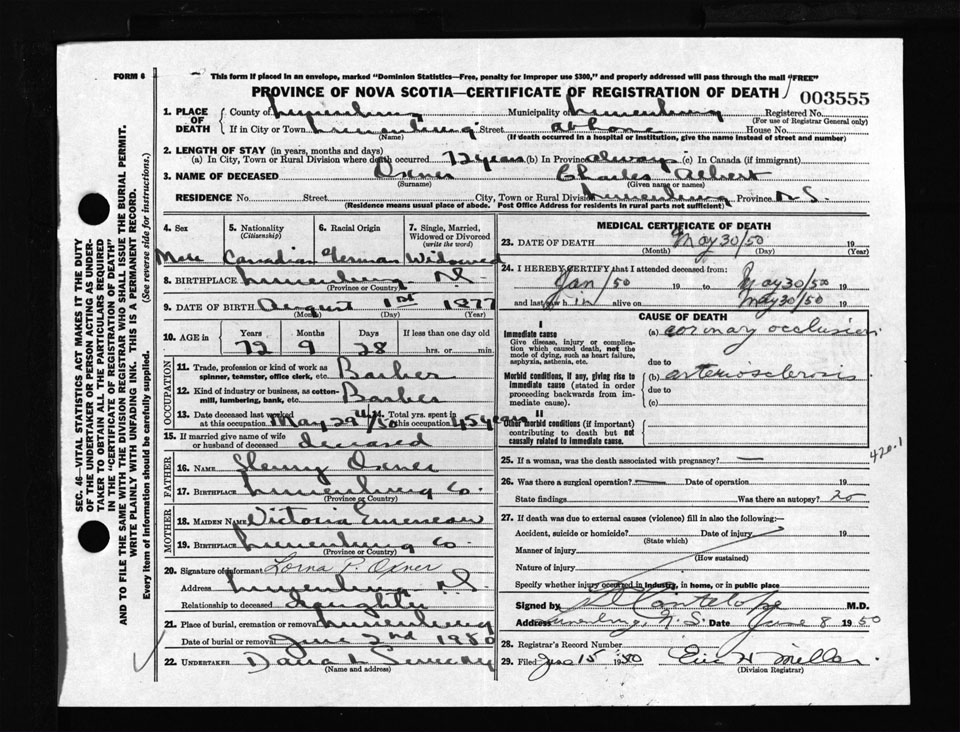 FORM 6
This form if placed in an envelope, marked "Dominion Statistics—Free, penalty for improper use $300," and properly addressed will pass through the mail "FREE"
PROVINCE OF NOVA SCOTIA—CERTIFICATE OF REGISTRATION OF DEATH
003555
1. PLACE OF DEATH
County of Lunenburg Municipality of Lunenburg Registered No.
(For use of Registrar General only)
If in City or Town Lunenburg Street at home House No.
(Name) (If death occurred in a hospital or institution, give the name instead of street and number)
2. LENGTH OF STAY (in years, months and days)
(a) In City, Town or Rural Division where death occurred 72 years (b) In Province always (c) In Canada (if immigrant)
3. NAME OF DECEASED Oxner Charles Albert
(Surname) (Given name or names)
RESIDENCE No. Street City, Town or Rural Division Lunenburg Province N.S.
(Residence means usual place of abode. Post Office Address for residents in rural parts not sufficient)
4. Sex 5. Nationality (Citizenship) 6. Racial Origin 7. Single, Married, Widowed or Divorced (write the word)
Male Canadian German Widowed
8. BIRTHPLACE Lunenburg N.S.
(Province or Country)
9. DATE OF BIRTH August 1st 1877
(Month) (Day) (Year)
10. AGE in Years Months Days If less than one day old
72 9 28 hrs. or min.
OCCUPATION
11. Trade, profession or kind of work as spinner, teamster, office clerk, etc. Barber
12. Kind of industry or business, as cotton-mill, lumbering, bank, etc. Barber
13. Date deceased last worked at this occupation May 29th/50 14. Total yrs. spent in this occupation 45 years
15. If married give name of wife or husband of deceased deceased
FATHER
16. NAME Henry Oxner
17. BIRTHPLACE Lunenburg Co.
(Province or Country)
MOTHER
18. MAIDEN NAME Victoria
19. BIRTHPLACE Lunenburg Co.
(Province or Country)
20. Signature of informant Lorna P. Oxner
Address Lunenburg N.S.
Relationship to deceased Daughter
21. Place of burial, cremation or removal Lunenburg
Date of burial or removal June 2nd 1950
22. UNDERTAKER Dana L Sweeny
(Name and address)
MEDICAL CERTIFICATE OF DEATH
23. DATE OF DEATH May 30/50 19
(Month) (Day) (Year)
24. I HEREBY CERTIFY that I attended deceased from:
Jan /50 19 to May 30/50 19
and last saw him alive on May 30/50 19
CAUSE OF DEATH
I
Immediate cause (a) coronary occlusion
Give disease, injury or complication which caused death, not the mode of dying, such as heart failure, asphyxia, asthenia, etc.
due to
Morbid conditions, if any, giving rise to immediate cause (stated in order proceeding backwards from immediate cause). (b) arteriosclerosis
due to
(c)
II
Other morbid conditions (if important) contributing to death but not causally related to immediate cause.
420.1
25. If a woman, was the death associated with pregnancy? —
26. Was there a surgical operation? — Date of operation 19
State findings Was there an autopsy? no
27. If death was due to external causes (violence) fill in also the following:—
Accident, suicide or homicide? Date of injury 19
(State which)
Manner of injury
(How sustained)
Nature of injury
Specify whether injury occurred in industry, in home, or in public place
Signed by Cantelope M.D.
Address Lunenburg, N.S. Date June 8 1950
28. Registrar's Record Number
29. Filed June 15 1950 Eric H Miller
(Division Registrar)
SEC. 46—VITAL STATISTICS ACT MAKES IT THE DUTY
OF THE UNDERTAKER OR PERSON ACTING AS UNDER-
TAKER TO OBTAIN ALL THE PARTICULARS REQUIRED
IN THE "CERTIFICATE OF REGISTRATION OF DEATH"
AND TO FILE THE SAME WITH THE DIVISION REGISTRAR WHO SHALL ISSUE THE BURIAL PERMIT.
WRITE PLAINLY WITH UNFADING INK. THIS IS A PERMANENT RECORD.
Every item of information should be carefully supplied. (See reverse side for instructions.)